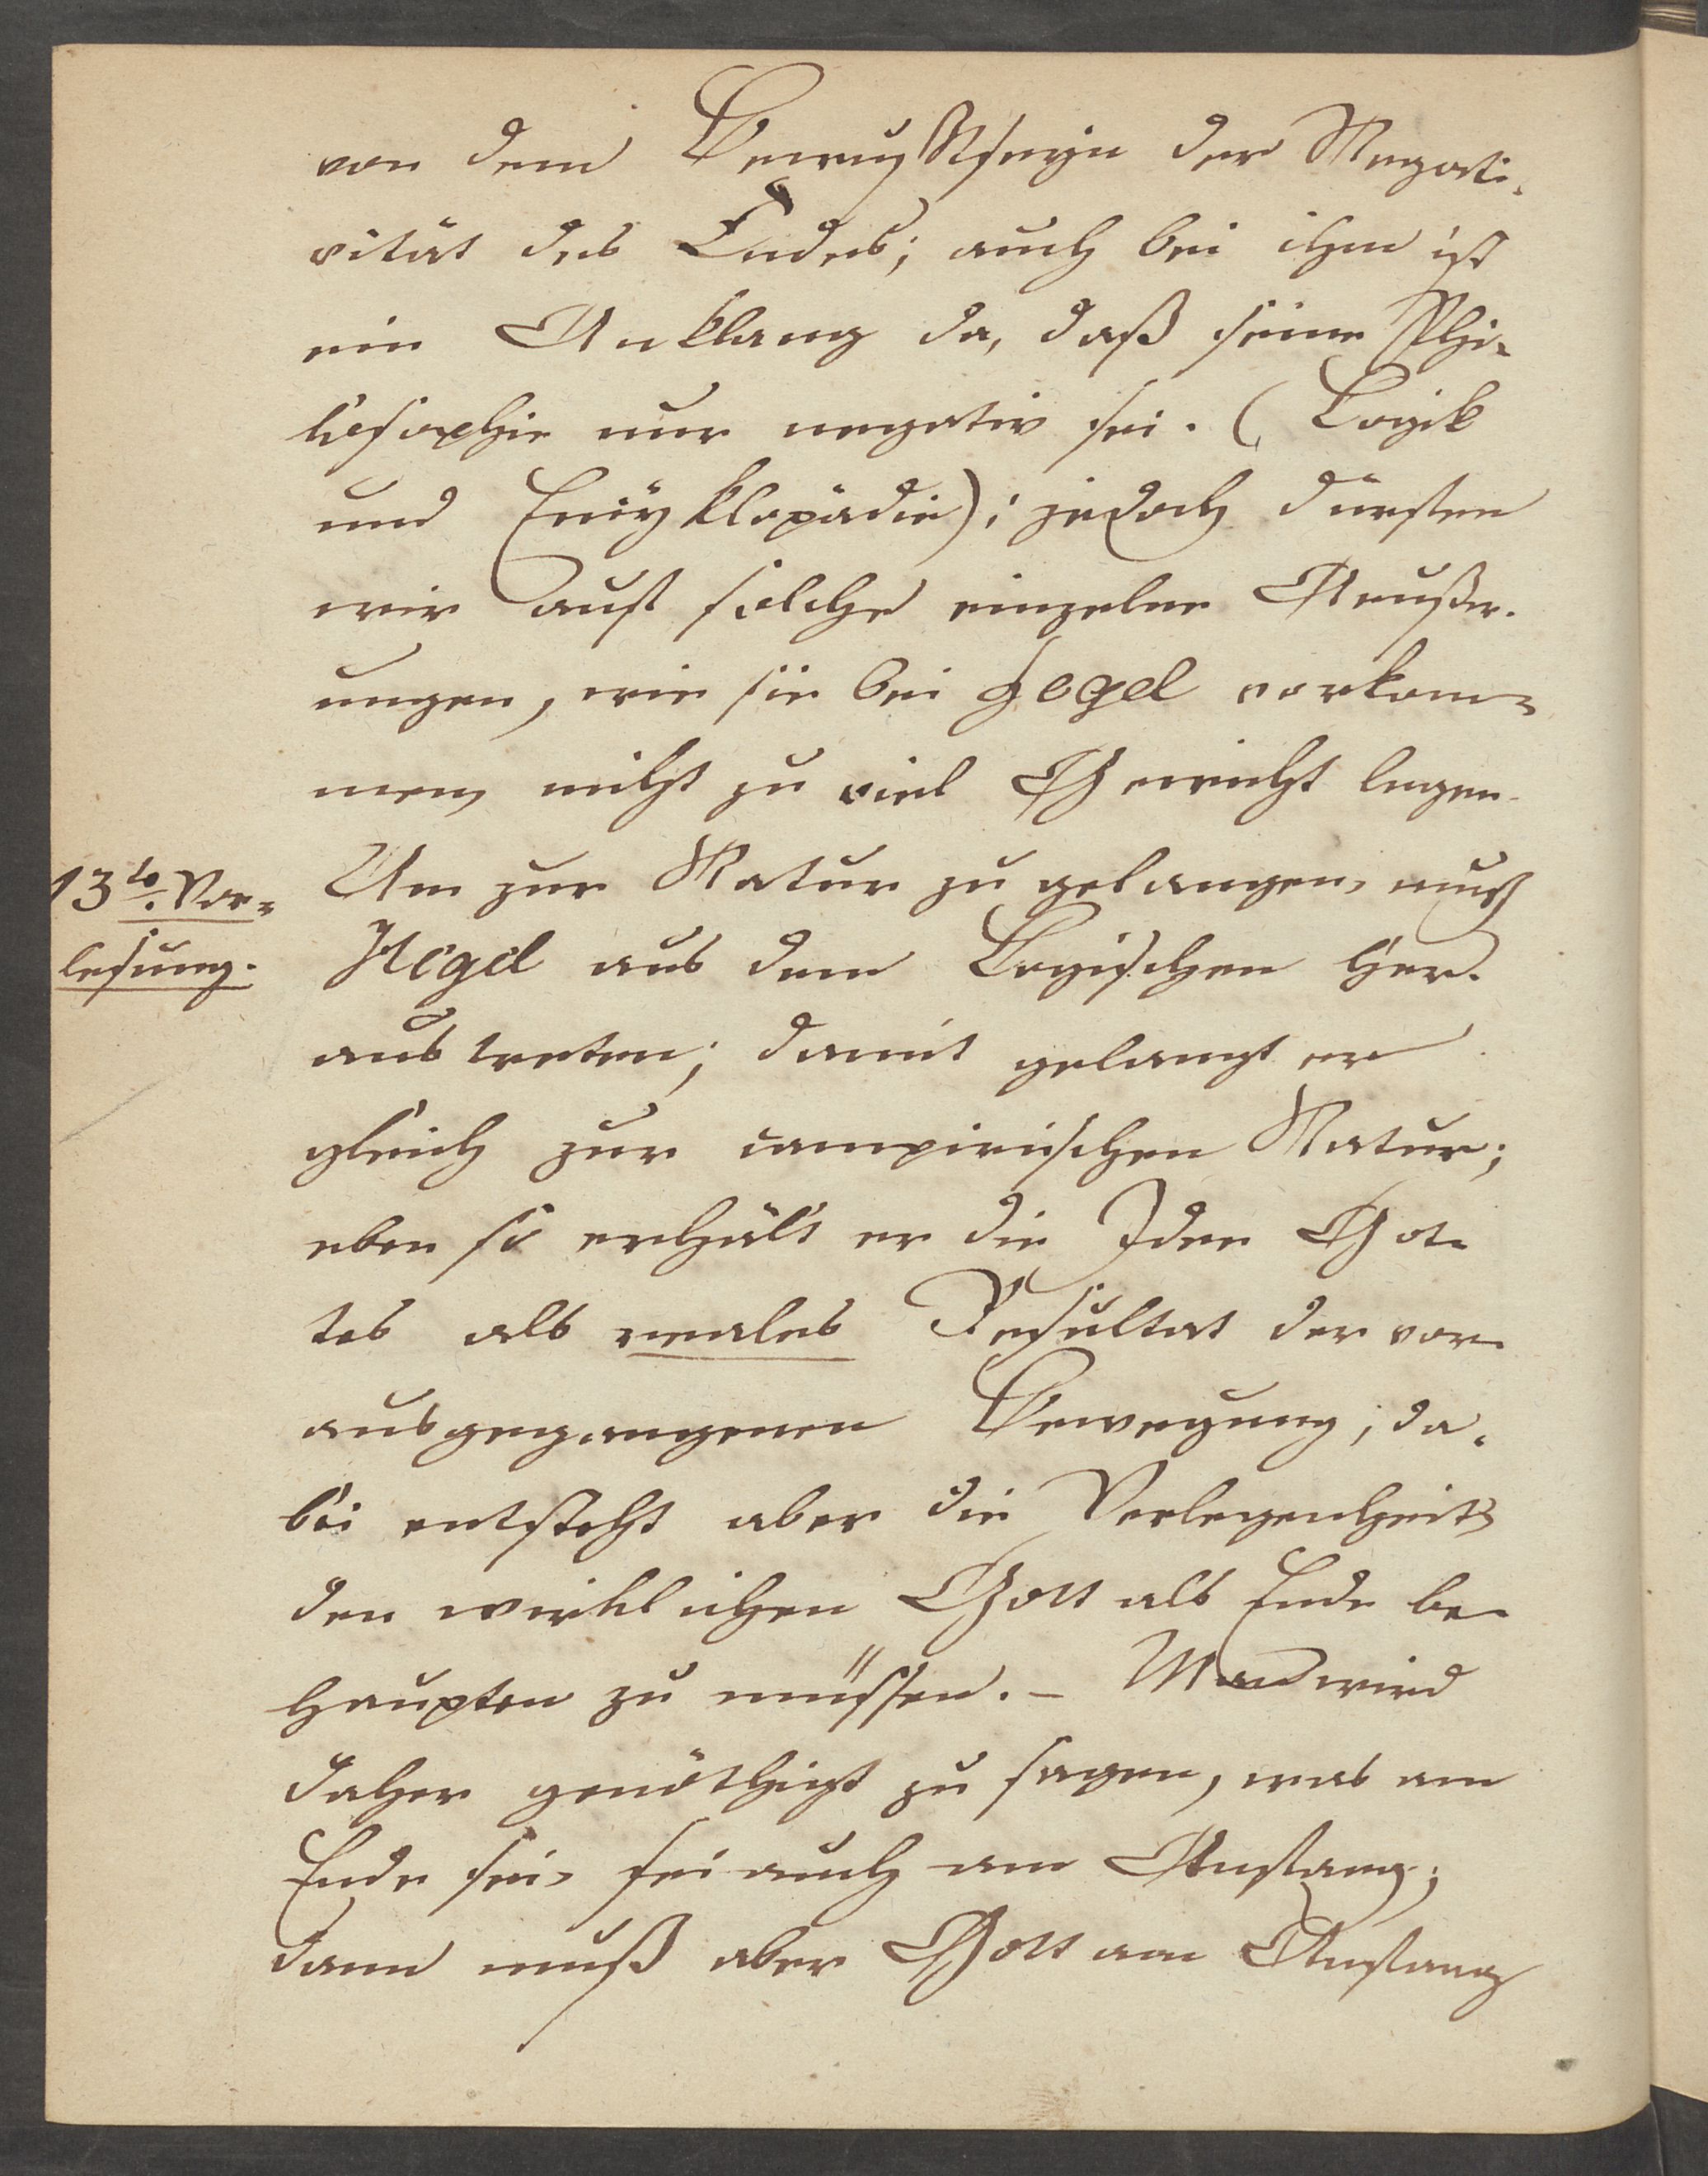 von dem Bewußtseyn der Negati-
vität des Endes; auch bei ihm ist
ein Anklang da, daß seine Phi-
losophie nur negativ sei. (Logik
und Encyklopädie); jedoch dürfen
wir auf solche einzelne Aeußer-
ungen, wie sie bei Hegel vorkom-
men, nicht zu viel Gewicht legen.
13te. Vor-
lesung.
Um zur Natur zu gelangen, muß
Hegel aus dem Logischen her-
austreten; damit gelangt er
gleich zur empirischen Natur;
eben so erhält er die Idee Got-
tes als reales Resultat der vor-
ausgegangenen Bewegung; da-
bei entsteht aber die Verlegenheit,
den wirklichen Gott als Ende be-
haupten zu müssen. – Man wird
daher genöthigt zu sagen, was am
Ende sei, sei auch am Anfang;
dann muß aber Gott am Anfang